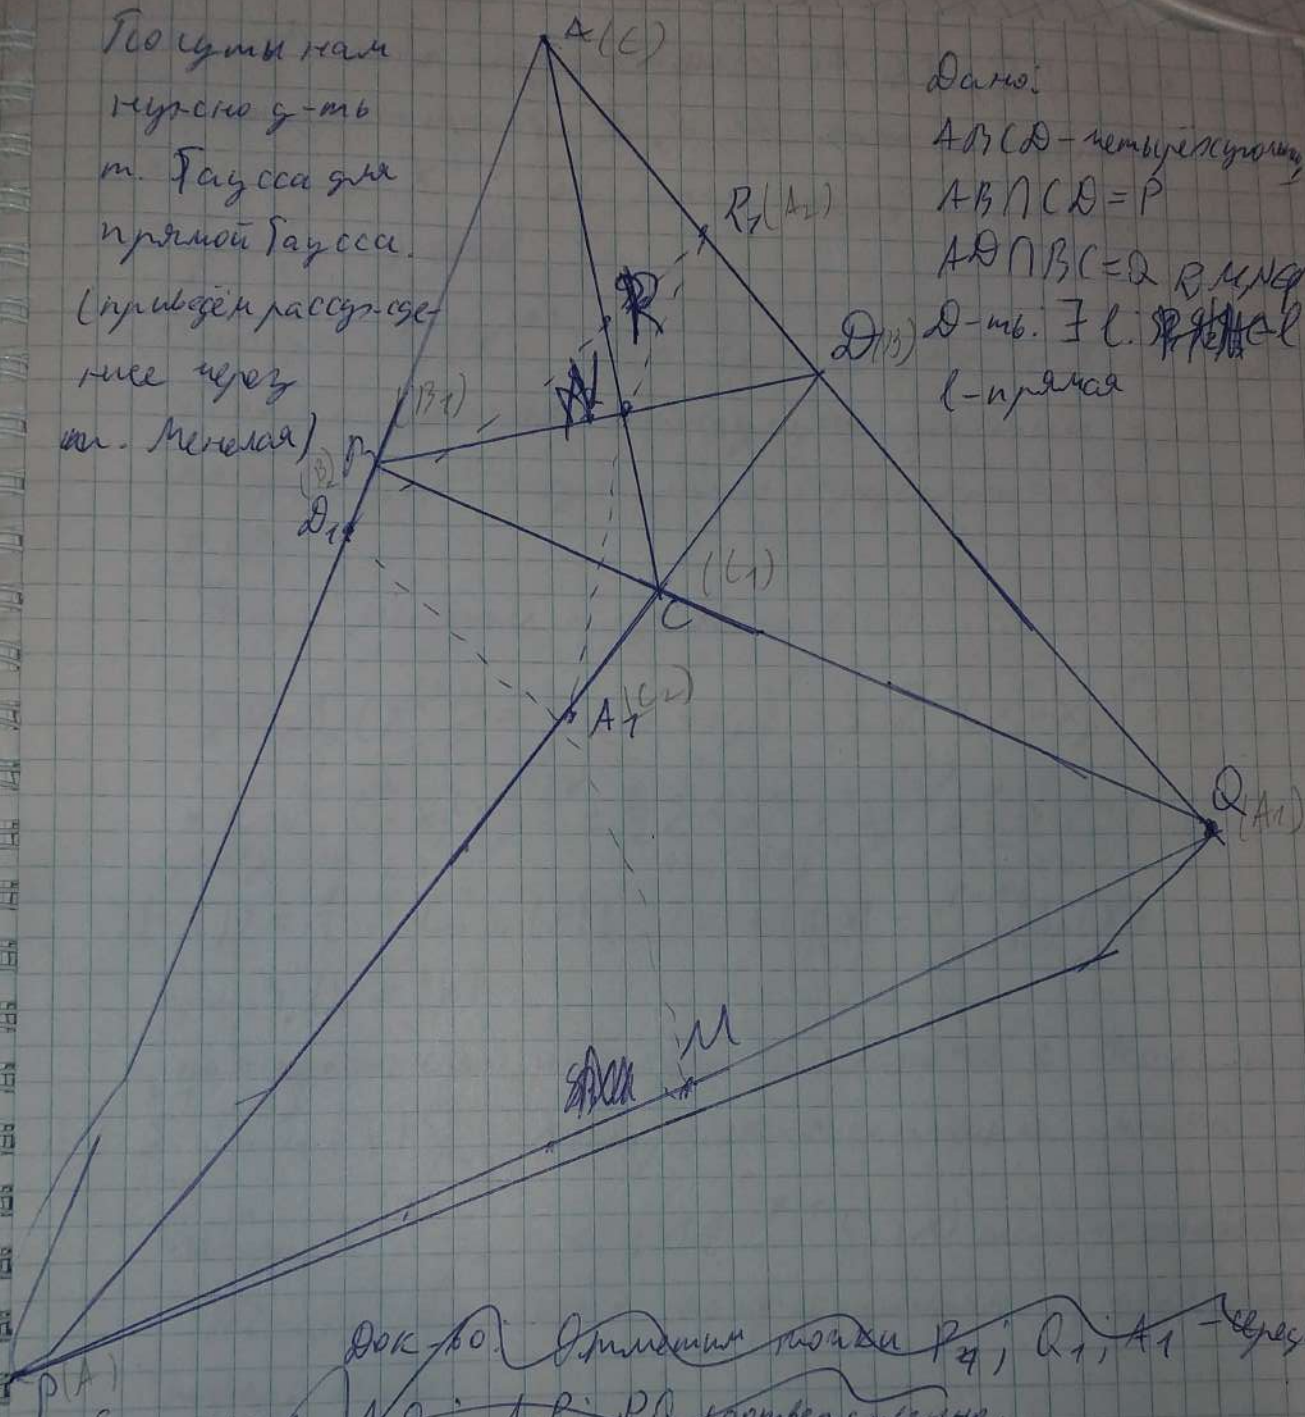 По сути нам
нужно д-ть
т. Гаусса для
прямой Гаусса.
(приведём рассужде-
ние через
т. Менелая)
Дано:
ABCD - четырёхугольник,
AB∩CD=P
AD∩BC=Q
Д-ть: ∃ l: ∈ l
l-прямая
A(C)
P1(A2)
R
D(B)
N
(B1)
B
(B2)
D1
(C1)
C
A1(C2)
Q(A1)
M
P(A)
Док-во: Отметим точки P1; Q1; A1 - серед